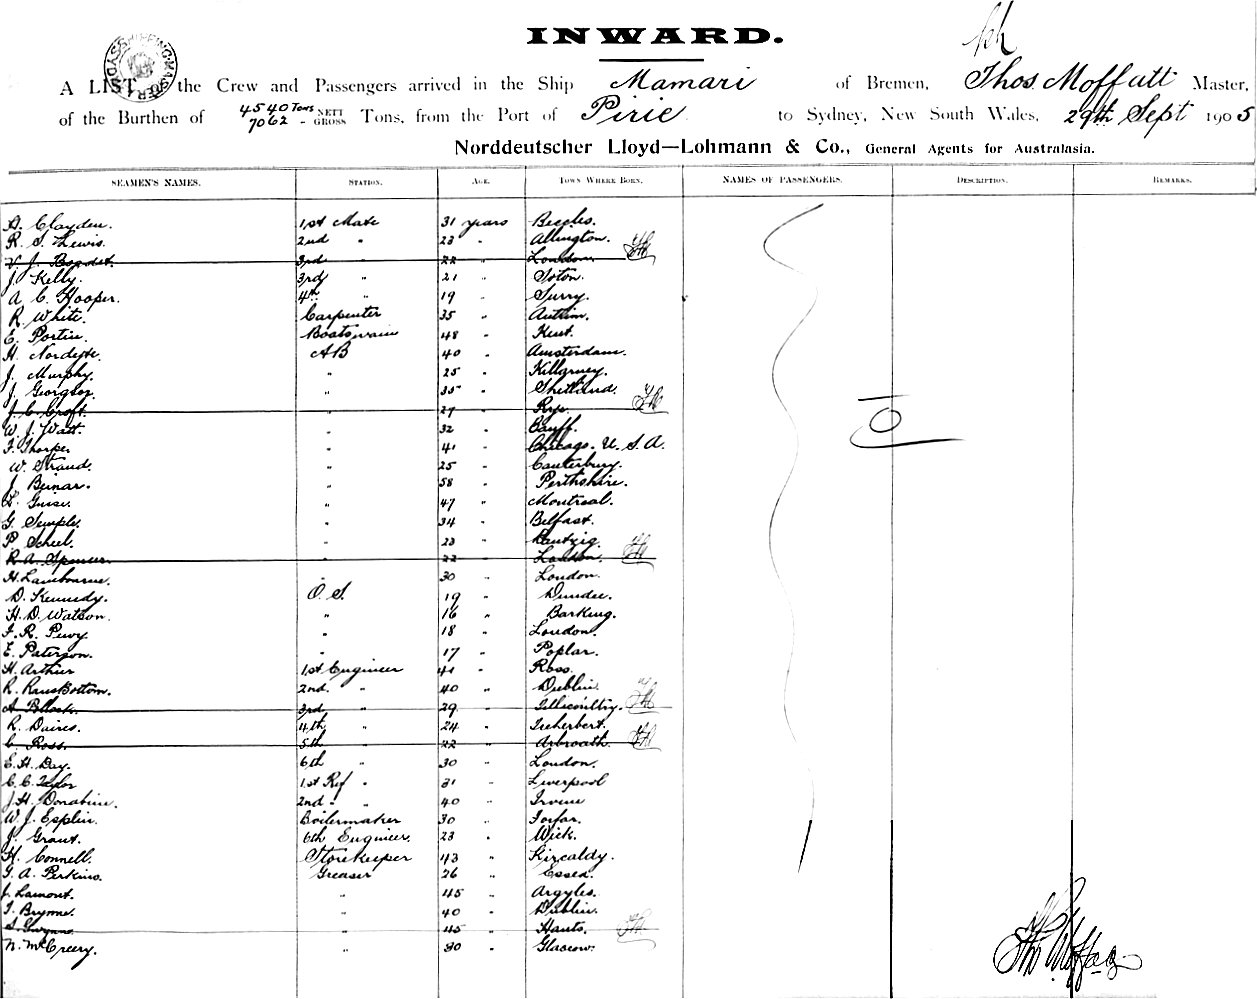 INWARD.
A LIST the Crew and Passengers arrived in the Ship Mamari of Bremen, Thos. Moffatt Master,
of the Burthen of 4540 Tons NETT 7062 - GROSS Tons, from the Port of Pirie to Sydney, New South Wales, 29th Sept 1905
Norddeutscher Lloyd—Lohmann & Co., General Agents for Australasia.
SEAMEN'S NAMES. STATION. AGE. TOWN WHERE BORN. NAMES OF PASSENGERS. DESCRIPTION. REMARKS.
A. Clayden. 1st Mate 31 years Beccles.
R. S. Lewis. 2nd " 23 " Allington.
J. 3rd " 22 " London.
J. Kelly. 3rd " 21 " Soton.
A C. Hooper. 4th " 19 " Surry.
R. White. Carpenter 35 " Antrim.
E. Portin. Boatswain 48 " Kent.
H. AB 40 " Amsterdam.
J. Murphy. " 25 "
J. " 35 " Shetland.
J. C. Croft. " 27 " Rye.
W. J. Watt. " 32 " Banff.
F. Thorpe. " 41 " Chicago. U. S. A.
W. Straud. " 25 " Canterbury.
J. Beinar. " 58 " Perthshire.
Guise. " 47 " Montreal.
G. Semple. " 34 " Belfast.
P. Scheel. " 23 " Dantzig.
R. A. Spencer. " 22 " London.
H. Lambourne. " 30 " London.
D. Kennedy. O. S. 19 " Dundee.
H. D. Watson. " 16 " Barking.
F. R. " 18 " London.
E. Paterson. " 17 " Poplar.
H. Arthur 1st Engineer 41 " Ross.
R. RamsBottom. 2nd. " 40 " Dublin.
A Pollock. 3rd " 29 " Tillicoultry.
R. Davies. 4th " 24 " Treherbert.
C. Ross. 5th " 22 " Arbroath.
E. H. Day. 6th " 30 " London.
C. C. Taylor 1st Ref " 31 " Liverpool
J. H. 2nd " " 40 " Irvine
W. J. Esplin. Boilermaker 30 " Forfar.
J. Grant. 6th Engineer. 23 " Wick.
H. Connell. Storekeeper 43 " Kircaldy.
G. A. Perkins. Greaser 26 " Essex.
J. Lamont. " 45 " Argyles.
T. Byrne. " 40 " Dublin.
S. Gwynne. " 45 " Hants.
N. McCreery. " 30 " Glascow.